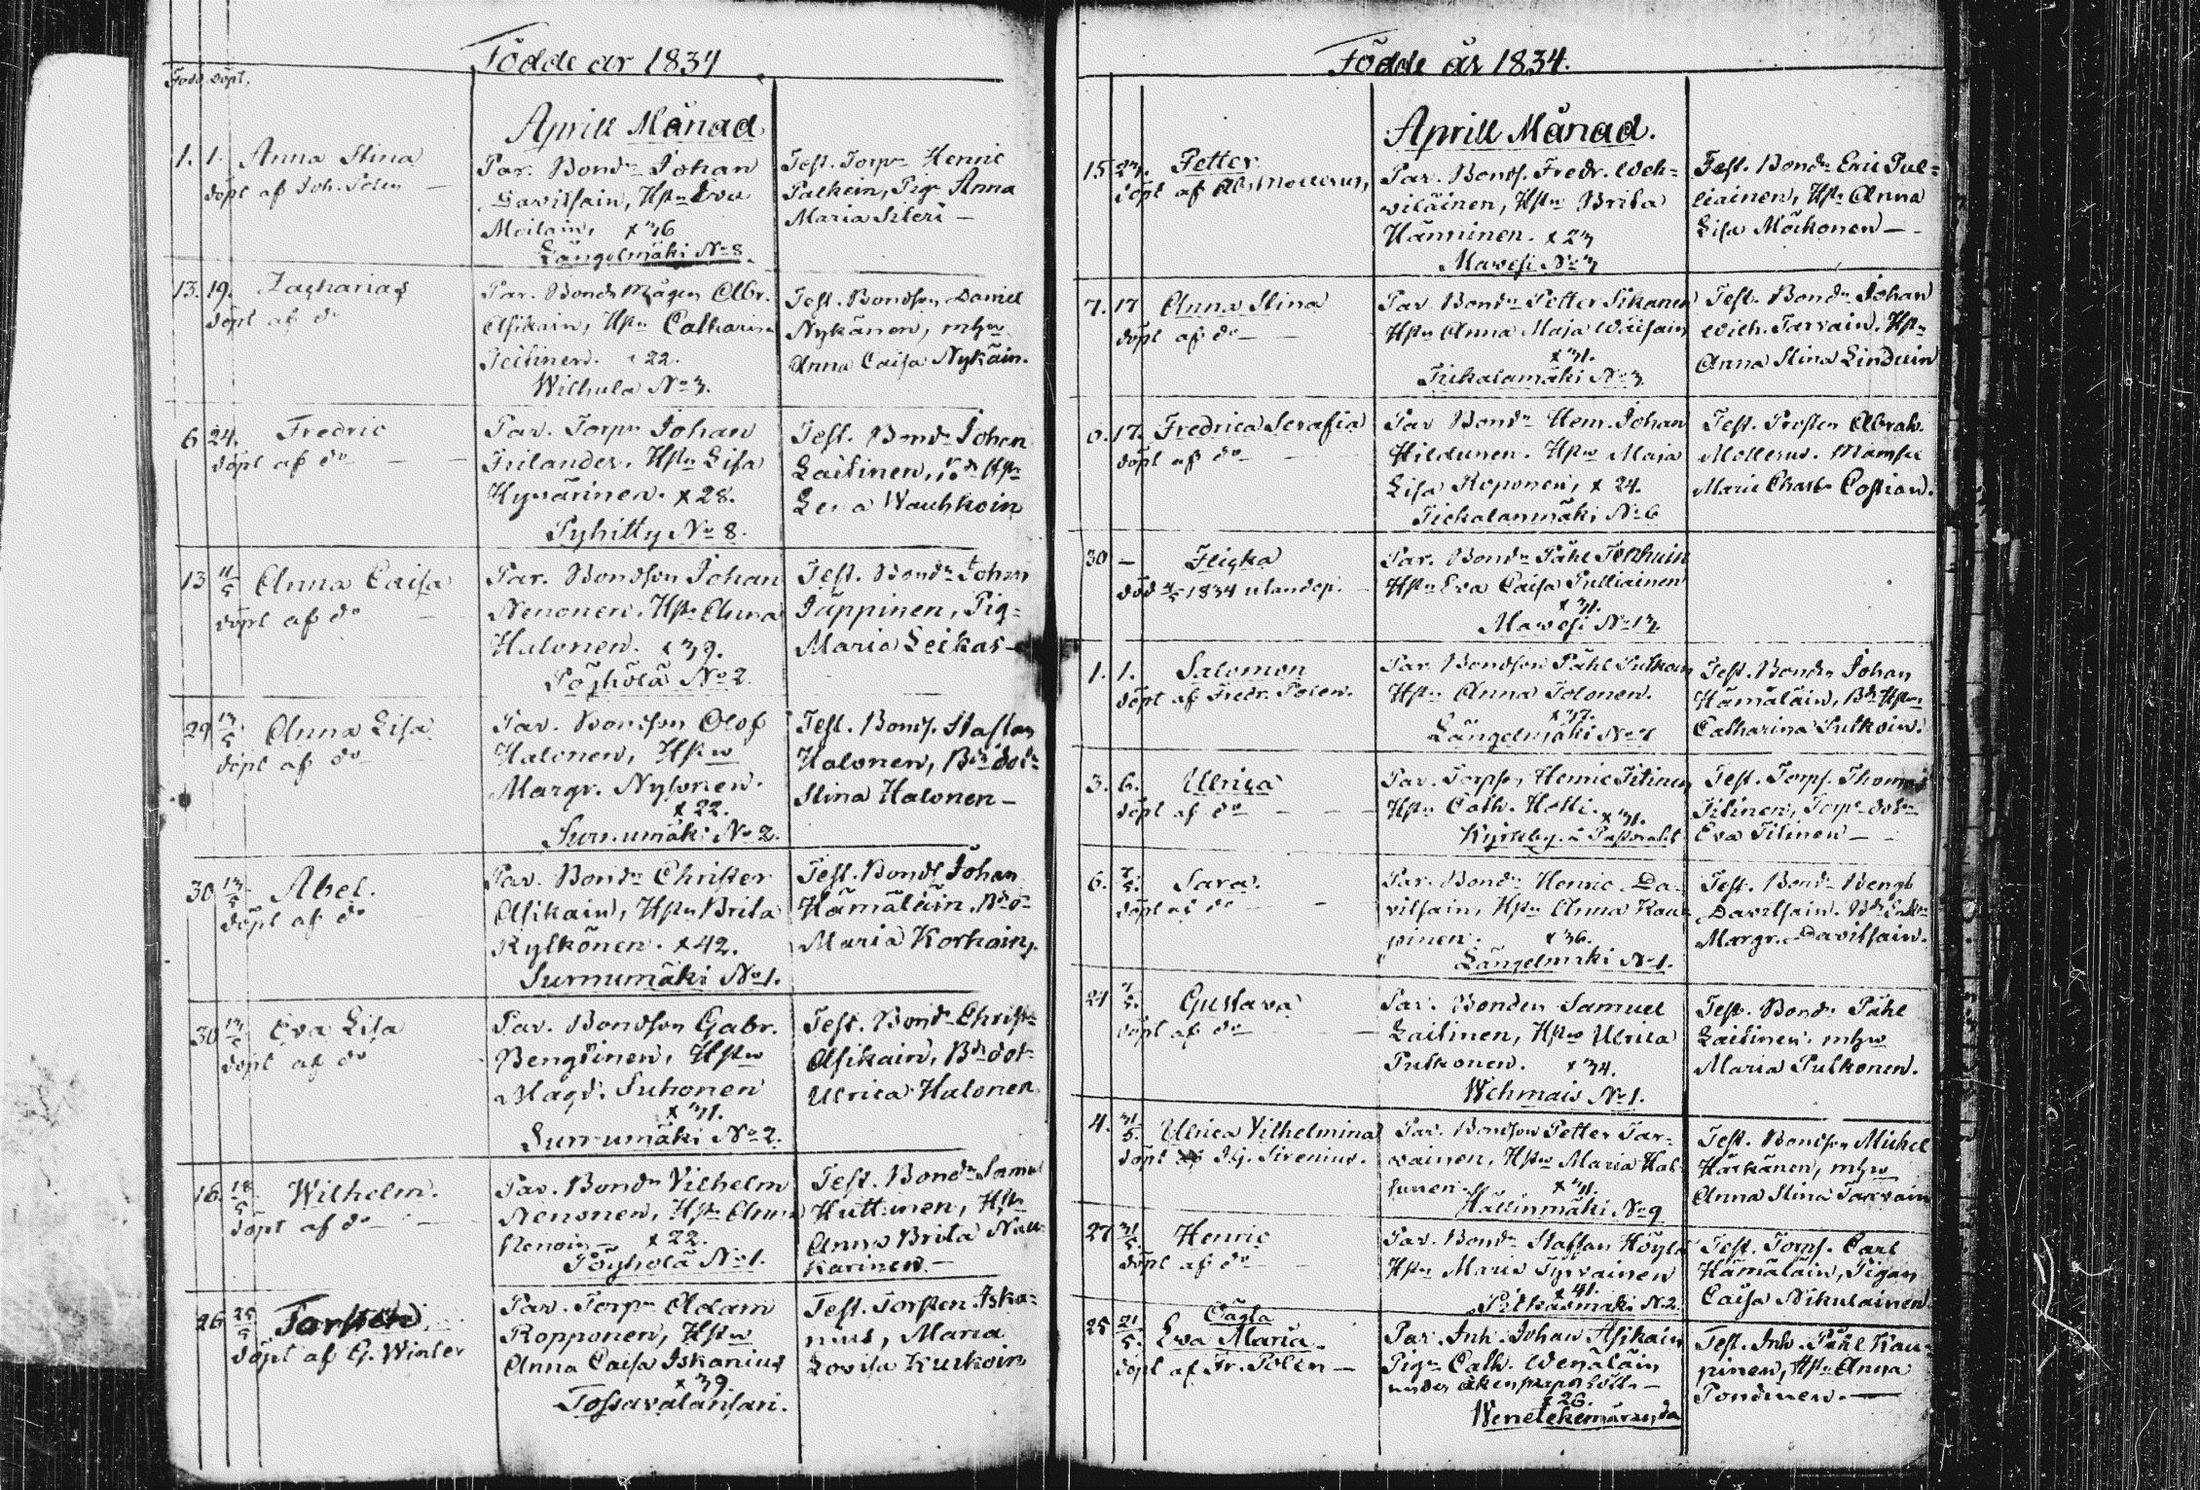 Födde år 1834
Född döpt.
Aprill Månad
1. 1. Anna Stina
döpt af Joh. Polen —
Par. Bondn Johan
Davitsain, Hstn Eva
Moilain, x 36
Längelmäki No 8.
Test. Torpn Henric
Patkein, Pig. Anna
Maria Siteri —
13. 19. Zacharias
döpt af do
Par. Bonds Mågen Abr.
Asikain, Hstn Catharina
Teitinen. x 22.
Wilhula No 3.
Test. Bondson Daniel
Nykänen, mhu
Anna Caisa Nykäin.
6 24. Fredric
döpt af do — —
Par. Torpn Johan
Frilander, Hstn Lisa
Hyvärinen. x 28.
Pyhitty No 8.
Test. Bondn Johan
Laitinen, Hstn
Lena Wauhkoin
13 11/5 Anna Caisa
döpt af do —
Par. Bondson Johan
Nenonen, Hstn Anna
Halonen. x 39.
Pöyhölä No 2
Test. Bondn Johan
Jäppinen, Pig-
Maria Leikas —
29 13/5 Anna Lisa
döpt af do —
Par. Bondson Olof
Halonen, Hstn
Margr. Nysonen.
x 22.
Surnumäki No 2.
Test. Bonds. Staffan
Halonen, Bds dotr
Stina Halonen —
30 13/5 Abel.
döpt af do —
Par. Bondn Christer
Asikain, Hstn Brita
Kylkönen. x 42.
Surnumäki No 1.
Test. Bonds Johan
Hämäläin,
Maria Korhoin,
30 13/5 Eva Lisa
döpt af do —
Par. Bondson Gabr.
Bengtinen, Hstn
Magd. Suhonen
x 31.
Surnumäki No 2.
Test. Bondn Christ.
Asikain, Bds dotr
Ulrica Halonen
16 18/5 Wilhelm.
döpt af do —
Par. Bondn Vilhelm
Nenonen, Hstn Anna
x 22.
Pöyhölä No 1.
Test. Bondn Saml
Huttunen, Hstn
Anna Brita Nau-
karinen. —
26 25/5 Torsten
döpt af G. Winter
Par. Torpn Adam
Ropponen, Hstn
Anna Caisa Iskanius
x 39
Tossavalansari.
Test. Torsten Iska-
nius, Maria
Lovisa Kurkoin
Födde år 1834.
Aprill Månad.
15 27. Petter
döpt af Ab. Mollerus,
Par. Bonds. Fredr. Weh-
viläinen, Hstn Brita
Hänninen. x 23
Mavesi No 3
Test. Bondn Eric Pul-
liainen, Hstn Anna
Lisa Möikonen —
7. 17 Anna Stina
döpt af do — —
Par. Bondn Petter Sikanen
Hstn Anna Maja Wäisain
x 31.
Tiekalamäki No 3
Test. Bondn Johan
Wilh. Tarvain. Hstn
Anna Stina Linduin
6. 17. Fredrica Serafia
döpt af do
Par Bondn Henr. Johan
Hildunen. Hstn Maja
Lisa Koponen, x 24.
Tiekalanmäki No 6
Test. Prosten Abrah.
Mollerus. Mamsel
Marie Charl. Costian.
30 — Flicka
död 4/5 1834 utan dop. —
Par. Bondn Påhl
Hstn Eva Caisa Pulliainen
x 31.
Mavesi No 13.
1. 1. Salomon
döpt af Fredr. Polen.
Par. Bondson Påhl Putkoin
Hstn Anna Tolonen.
x 37.
Längelmäki No 7
Test. Bondn Johan
Hämäläin, Bds Hstn
Catharina Putkoin.
3. 6. Ulrica
döpt af do — — —
Par. Torpson Henric Titinen
Hstn Cath. Holti. x 31.
Kyrkby. å Pastoralet
Test. Torps. Thomas
Titinen, Torps dotn
Eva Titinen —
6. 7/5. Sara.
döpt af do —
Par. Bondn Henric Da-
vitsain, Hstn Anna Kau-
pinen. x 36.
Längelmäki No 1.
Test. Bondn Bengt
Davitsain.
Margr. Davitsain.
21 7/5. Gustava
döpt af do —
Par. Bonden Samuel
Laitinen, Hstn Ulrica
Putkonen. x 34.
Wehmais No 1.
Test. Bondn Påhl
Laitinen. mhu
Maria Putkonen.
4. 31/5. Ulrica Vilhelmina
döpt af I.G. Sirenius.
Par. Bondson Petter Tar-
vainen, Hstn Maria Hal-
tunen. x 31.
Hällinmäki No 9
Test. Bondson Michel
Härkänen, mhu
Anna Stina Tarvain
27 31/5. Henric
döpt af do —
Par. Bondn Staffan Höylä
Hstn Maria Tyrväinen
x 41.
Pitkäsmäki No 2.
Test. Torps. Carl
Hämäläin, Pigan
Caisa Nikulainen
25 21/5. Oägta
Eva Maria.
döpt af Fr. Polén —
Par. Inh. Johan Asikain
Pign Cath. Wenäläin
under äkenskapslöfte —
x 26.
Test. Inh. Påhl Kau-
pinen, Hstn Anna
Pondinen. —